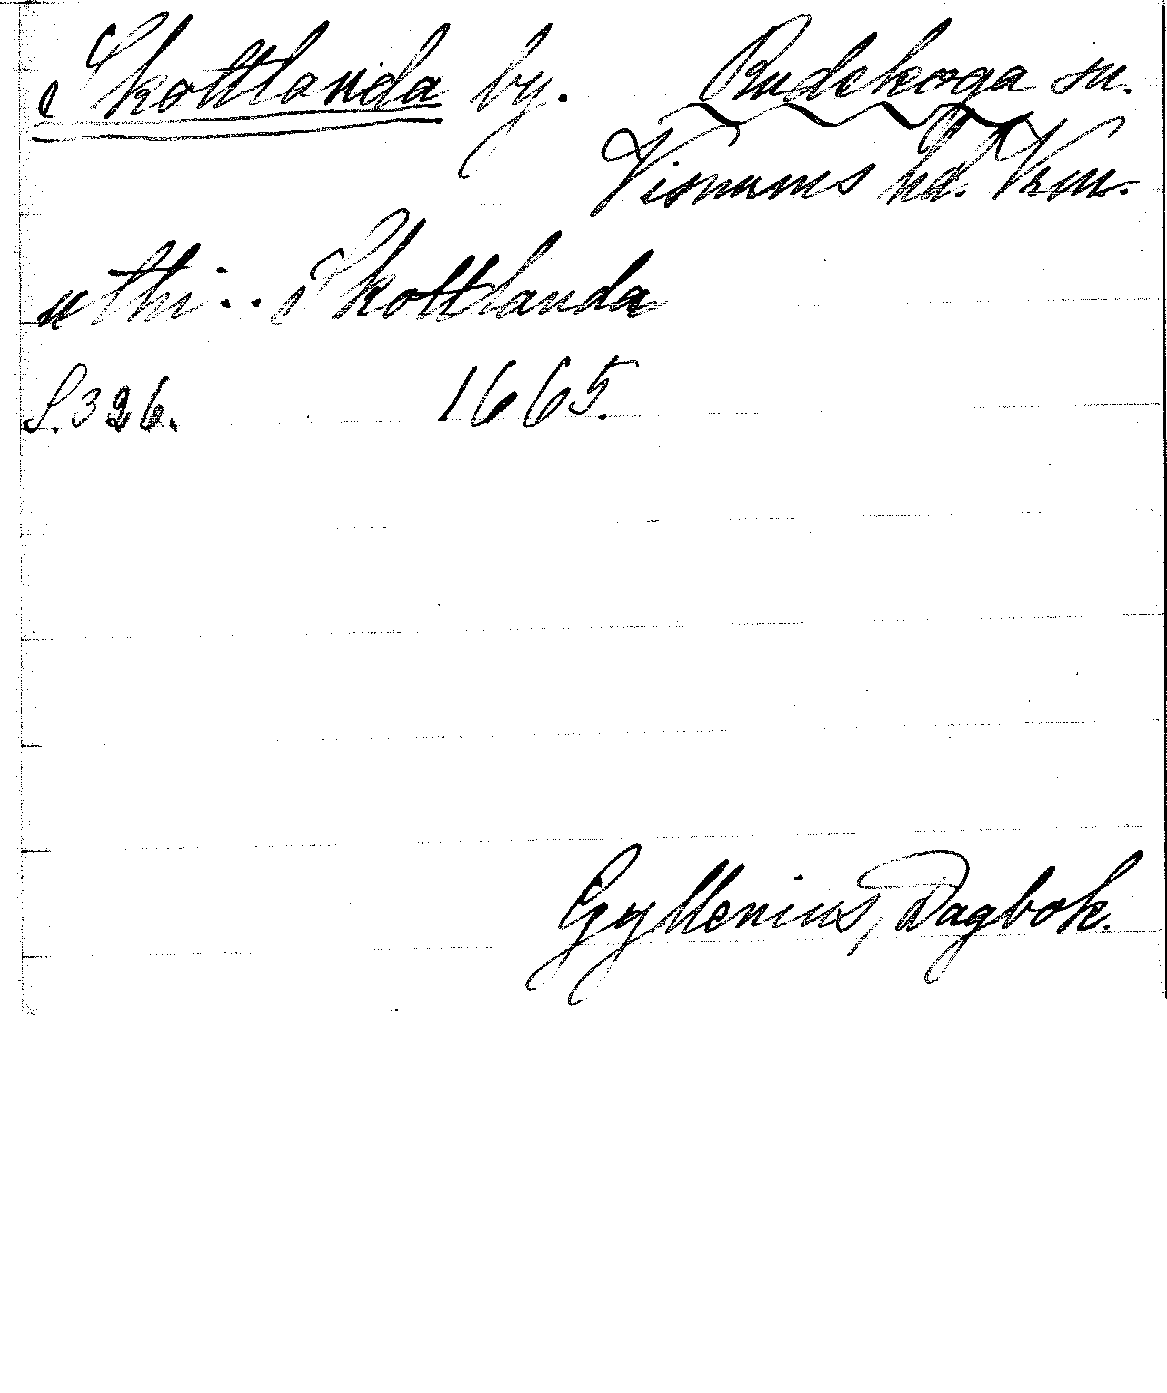 Skottlanda by. Rudskoga sn.
Visnums hd. Vrm.
uthi .. Skottlanda
S. 326. 1665.
Gyllenius, Dagbok.